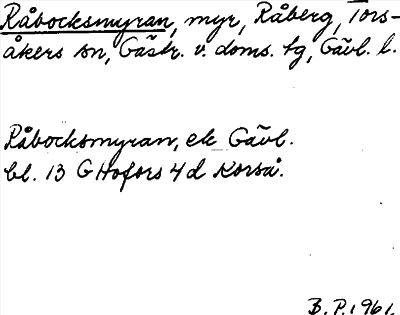 Råbocksmyran, myr, Råberg, Tors-
åkers sn, Gästr. v. doms. tg, Gävl. l.
Råbocksmyran, ek Gävl.
bl. 13 G Hofors 4 d Korså.
B. P. 1961.